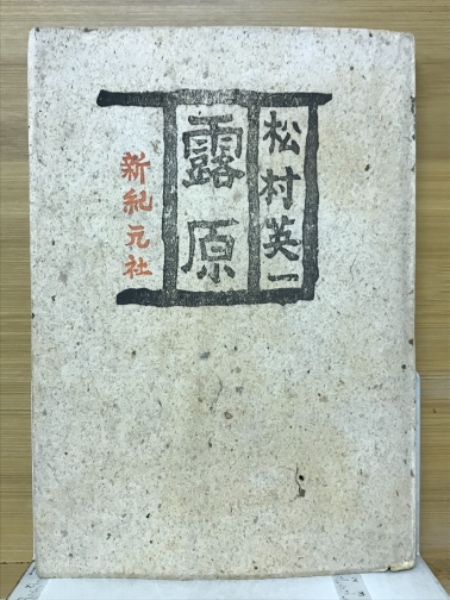 松村英一
露原
新紀元社